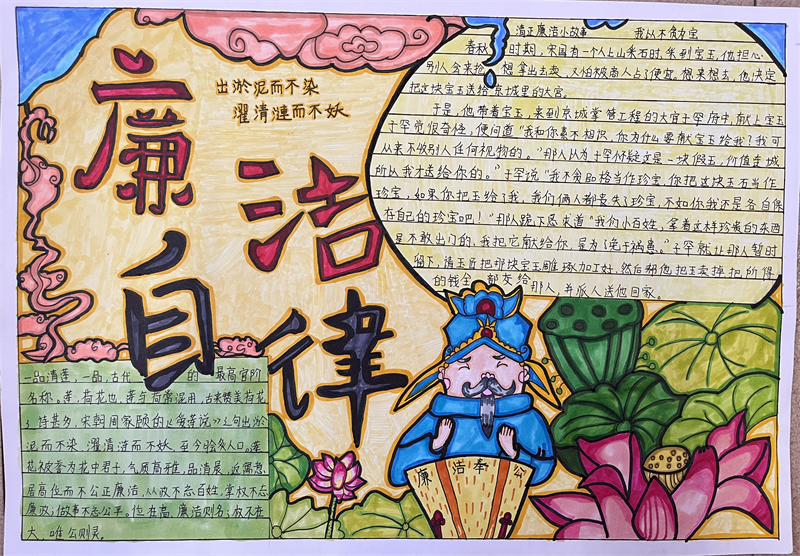 廉洁
自律
出淤泥而不染
濯清涟而不妖
清正廉洁小故事 我以不贪为宝
春秋时期,宋国有一个人上山采石时,采到宝玉,他担心
别人会来抢,想拿出去卖,又怕被商人占了便宜,想来想去,他决定
把这块宝玉送给京城里的大官。
于是,他带着宝玉,来到京城掌管工程的大官子罕府中,献上宝玉
子罕觉很奇怪,便问道“我和你素不相识,你为什么要献宝玉给我?我可
从来不收别人任何礼物的。”那人以为子罕怀疑这是一块假玉,价值连城
所以我才送给你的。”子罕说“我不贪的品格当作珍宝,你把这块玉石当作
珍宝,如果你把玉给了我,我们俩人都丧失了珍宝,不如你我还是各自保
存自己的珍宝吧!”那人跪下恳求道“我们小百姓,拿着这样珍贵的东西
是不敢出门的,我把它献给你,是为了免于祸患。”子罕就让那人暂时
留下,请玉匠把那块宝玉雕琢加工好,然后帮他把玉卖掉把所得
的钱全部交给那人,并派人送他回家。
一品清莲,一品,古代的最高官阶
名称。莲,荷花也,莲与荷常混用,古来赞美荷花
诗甚多,宋朝周敦颐的《爱莲说》句出淤
泥而不染,濯清涟而不妖,至今脍炙人口。莲
花被誉为花中君子,气质高雅,品清
居高位而不公正廉洁,从政不忘百姓,掌权不忘
廉政,做事不忘公平。位在高,廉洁则名;权不在
大,唯公则灵。
廉洁奉公